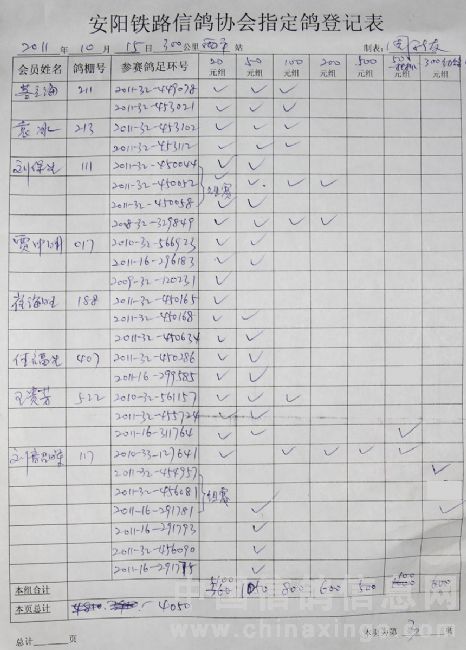 安阳铁路信鸽协会指定鸽登记表
2011 年 10 月 15 日 300 公里 西平 站 制表:
会员姓名 鸽棚号 参赛鸽足环号 20元组 50元组 100元组 200元组 500元组 50 300
211 2011-32-449078 ✓ ✓ ✓
2011-32-453021 ✓ ✓ ✓
袁冰 213 2011-32-453102 ✓ ✓ ✓
2011-32-453112 ✓ ✓ ✓
刘保生 111 2011-32-450044 ✓ ✓
2011-32-450052 组赛 ✓ ✓ ✓
2011-32-450058 ✓ ✓
2008-32-329849 ✓ ✓ ✓ ✓
贾中明 017 2010-32-566923 ✓ ✓
2011-16-296183 ✓ ✓
2009-32-120231 ✓
崔海旺 188 2011-32-450165 ✓
2011-32-450168 ✓ ✓
2011-32-450634 ✓ ✓
任福生 407 2011-32-450286 ✓ ✓
2011-16-299585 ✓ ✓
王贵芳 522 2010-32-561157 ✓ ✓ ✓
2011-32-455724 ✓ ✓
2011-16-311764 ✓ ✓ ✓
117 2010-33-127641 ✓ ✓ ✓ ✓ ✓ ✓
2011-32-454957 ✓
2011-32-456081 组赛
2011-16-291781 ✓ ✓
2011-16-291793 ✓
2011-32-456090 ✓
2011-16-291715 ✓
本组合计 1050 800 600 500 600
本页总计 4050
总计 页 本页为第 3 页
中国信鸽信息网
www.chinaxinge.com